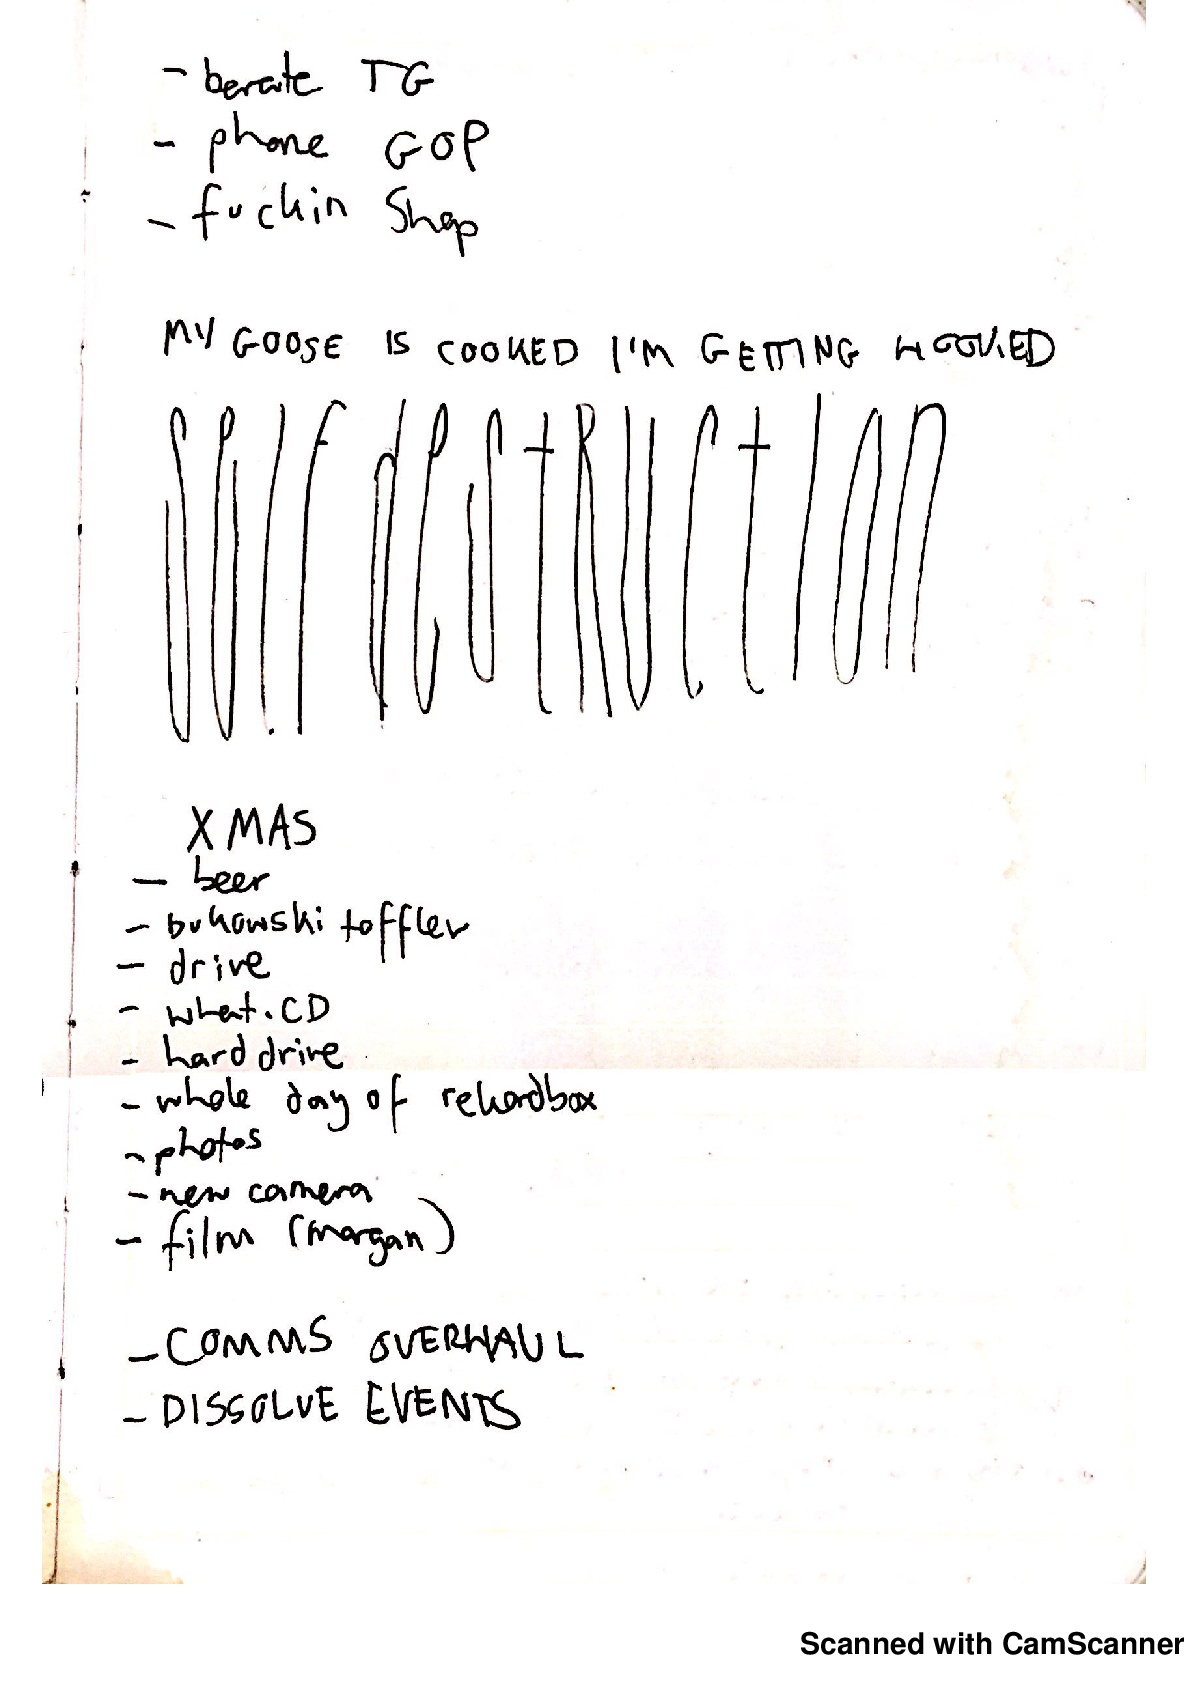 - berate TG
- phone GOP
- fuckin Shop
MY GOOSE IS COOKED I'M GETTING HOOKED
SELF dEStRUCtION
XMAS
- beer
- bukowski toffler
- drive
- what.CD
- hard drive
- whole day of rekordbox
- photos
- new camera
- film (morgan)
- COMMS OVERHAUL
- DISSOLVE EVENTS
Scanned with CamScanner